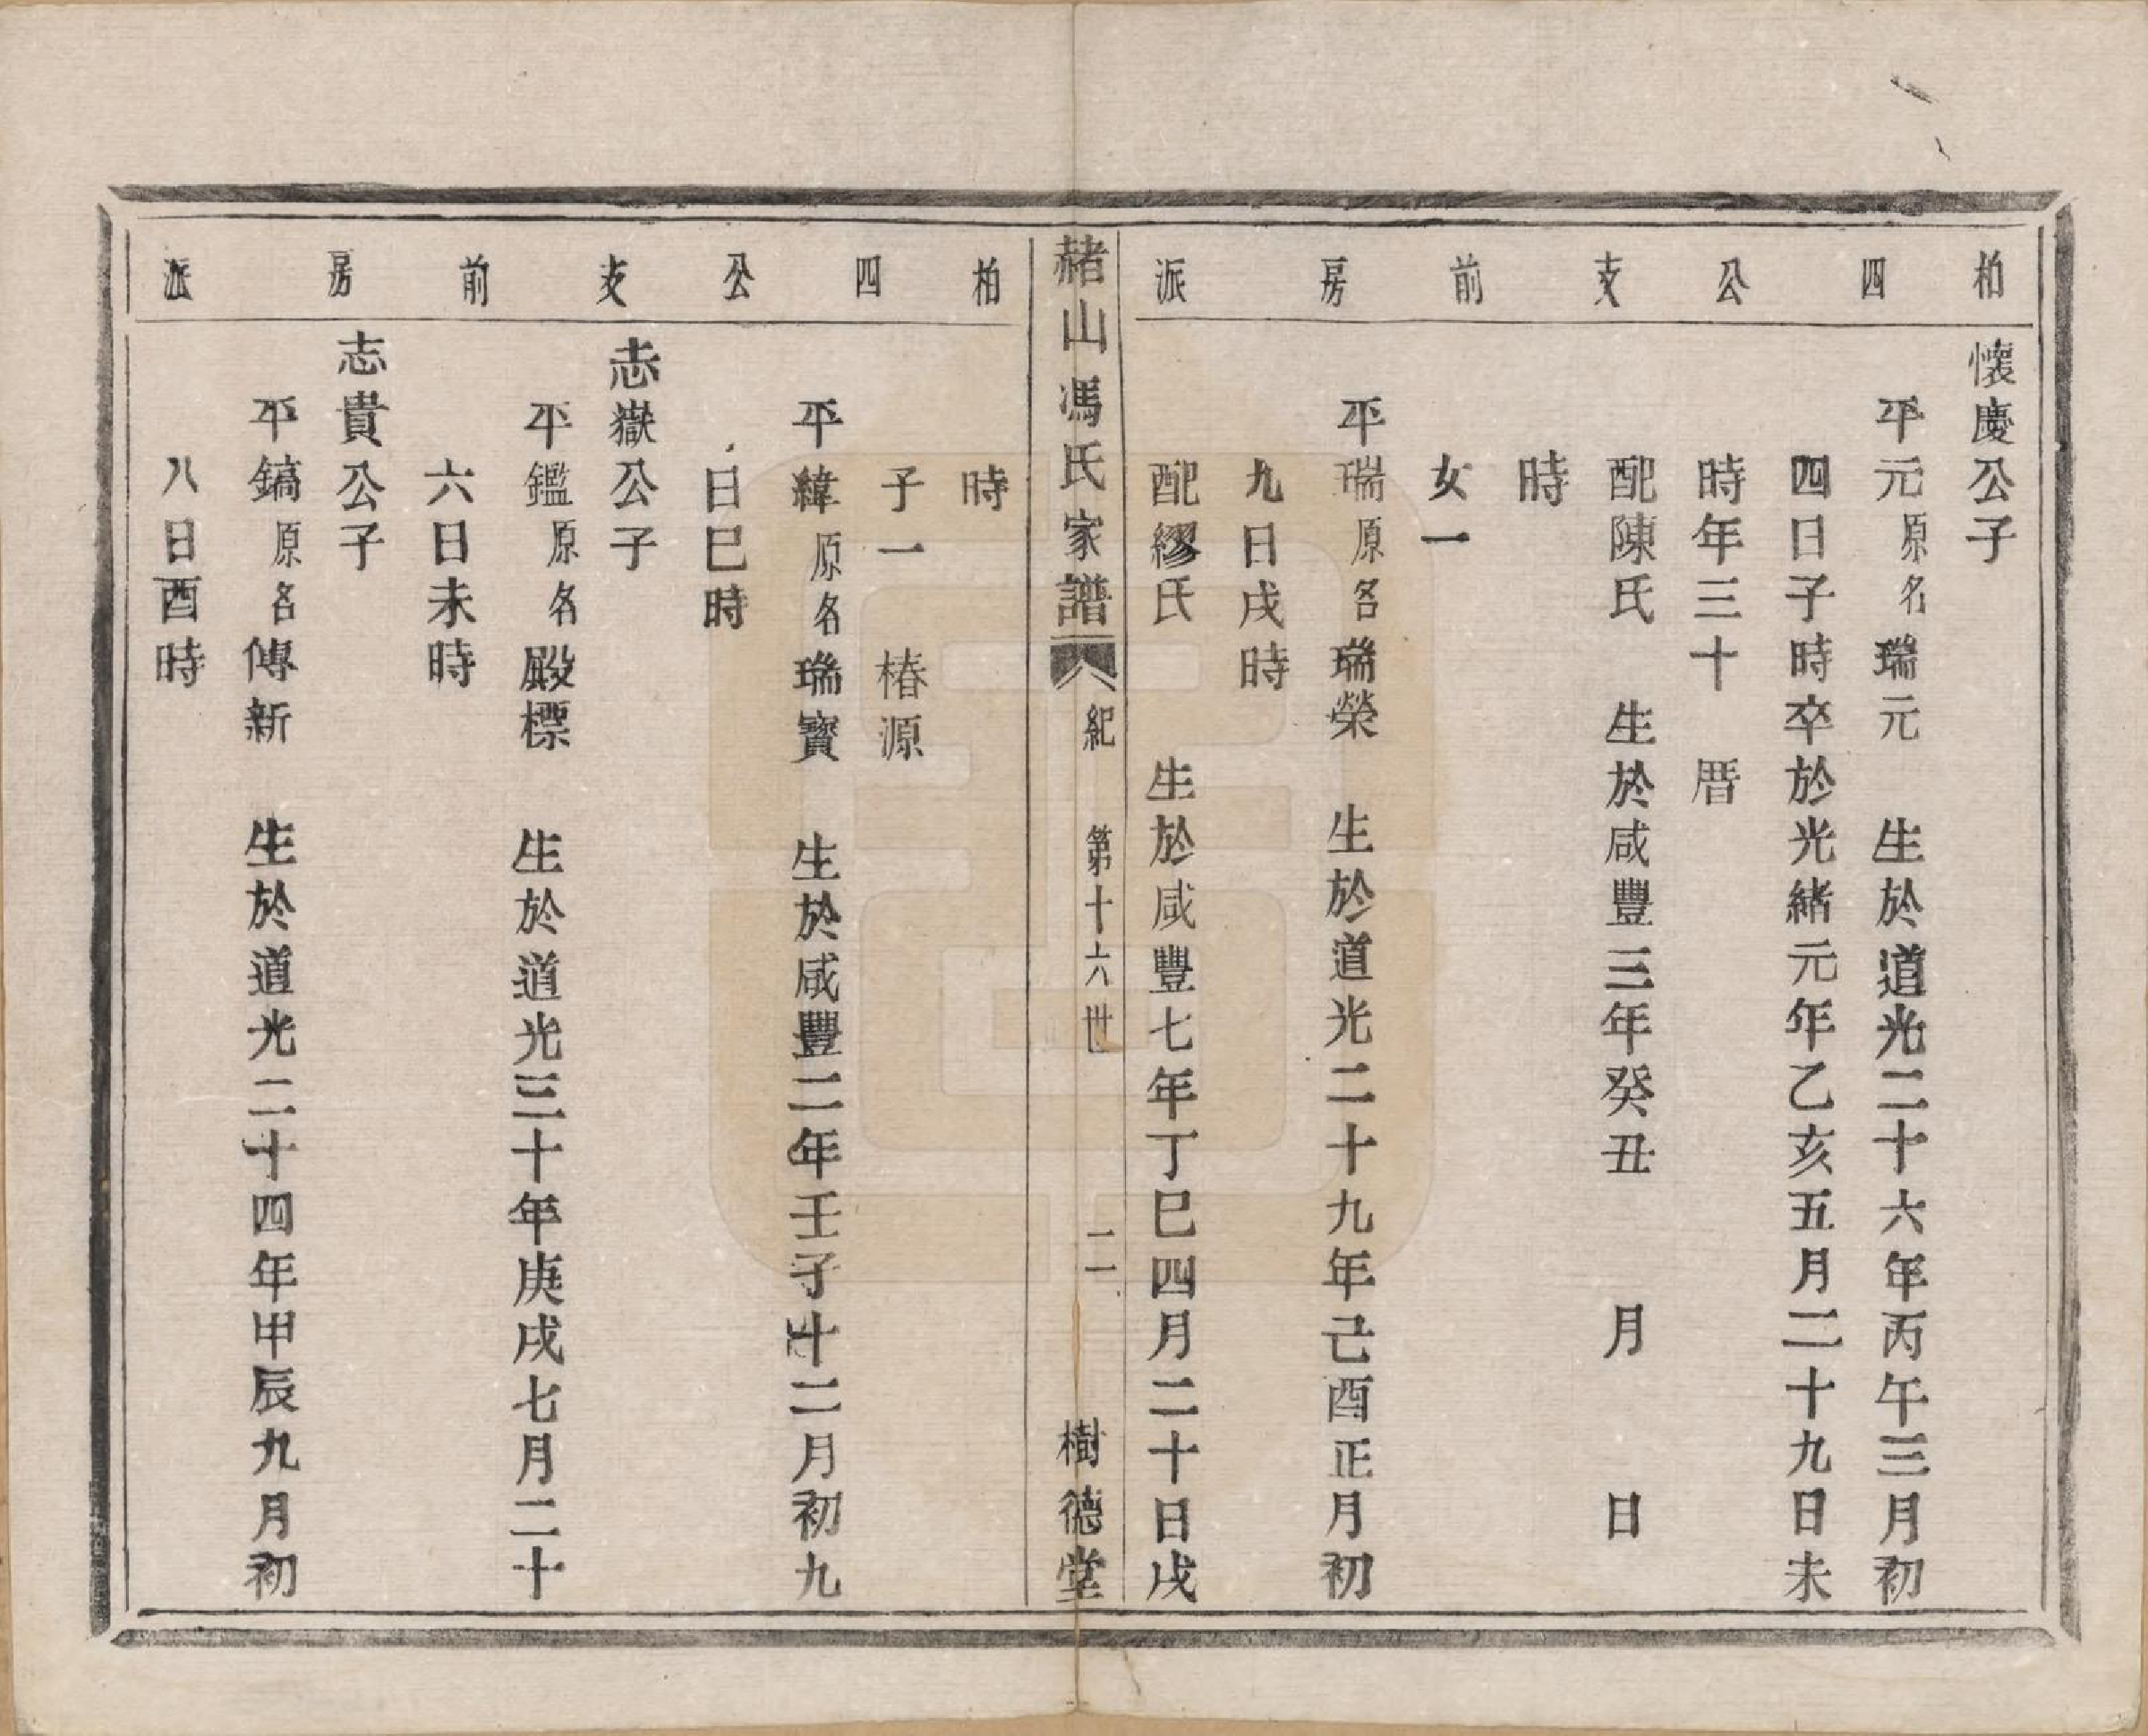 柏四公支前房派
懷慶公子
平元原名瑞元　生於道光二十六年丙午三月初
四日子時卒於光緒元年乙亥五月二十九日未
時年三十　厝
配陳氏　生於咸豐三年癸丑　月　日
時
女一
平瑞原名瑞榮　生於道光二十九年己酉正月初
九日戌時
配繆氏　生於咸豐七年丁巳四月二十日戌
赭山馮氏家譜　紀　第十六世　二　樹德堂
柏四公支前房派
時
子一　椿源
平緯原名瑞寶　生於咸豐二年壬子十二月初九
日巳時
志嶽公子
平鑑原名殿標　生於道光三十年庚戌七月二十
六日未時
志貴公子
平鎬原名傳新　生於道光二十四年甲辰九月初
八日酉時